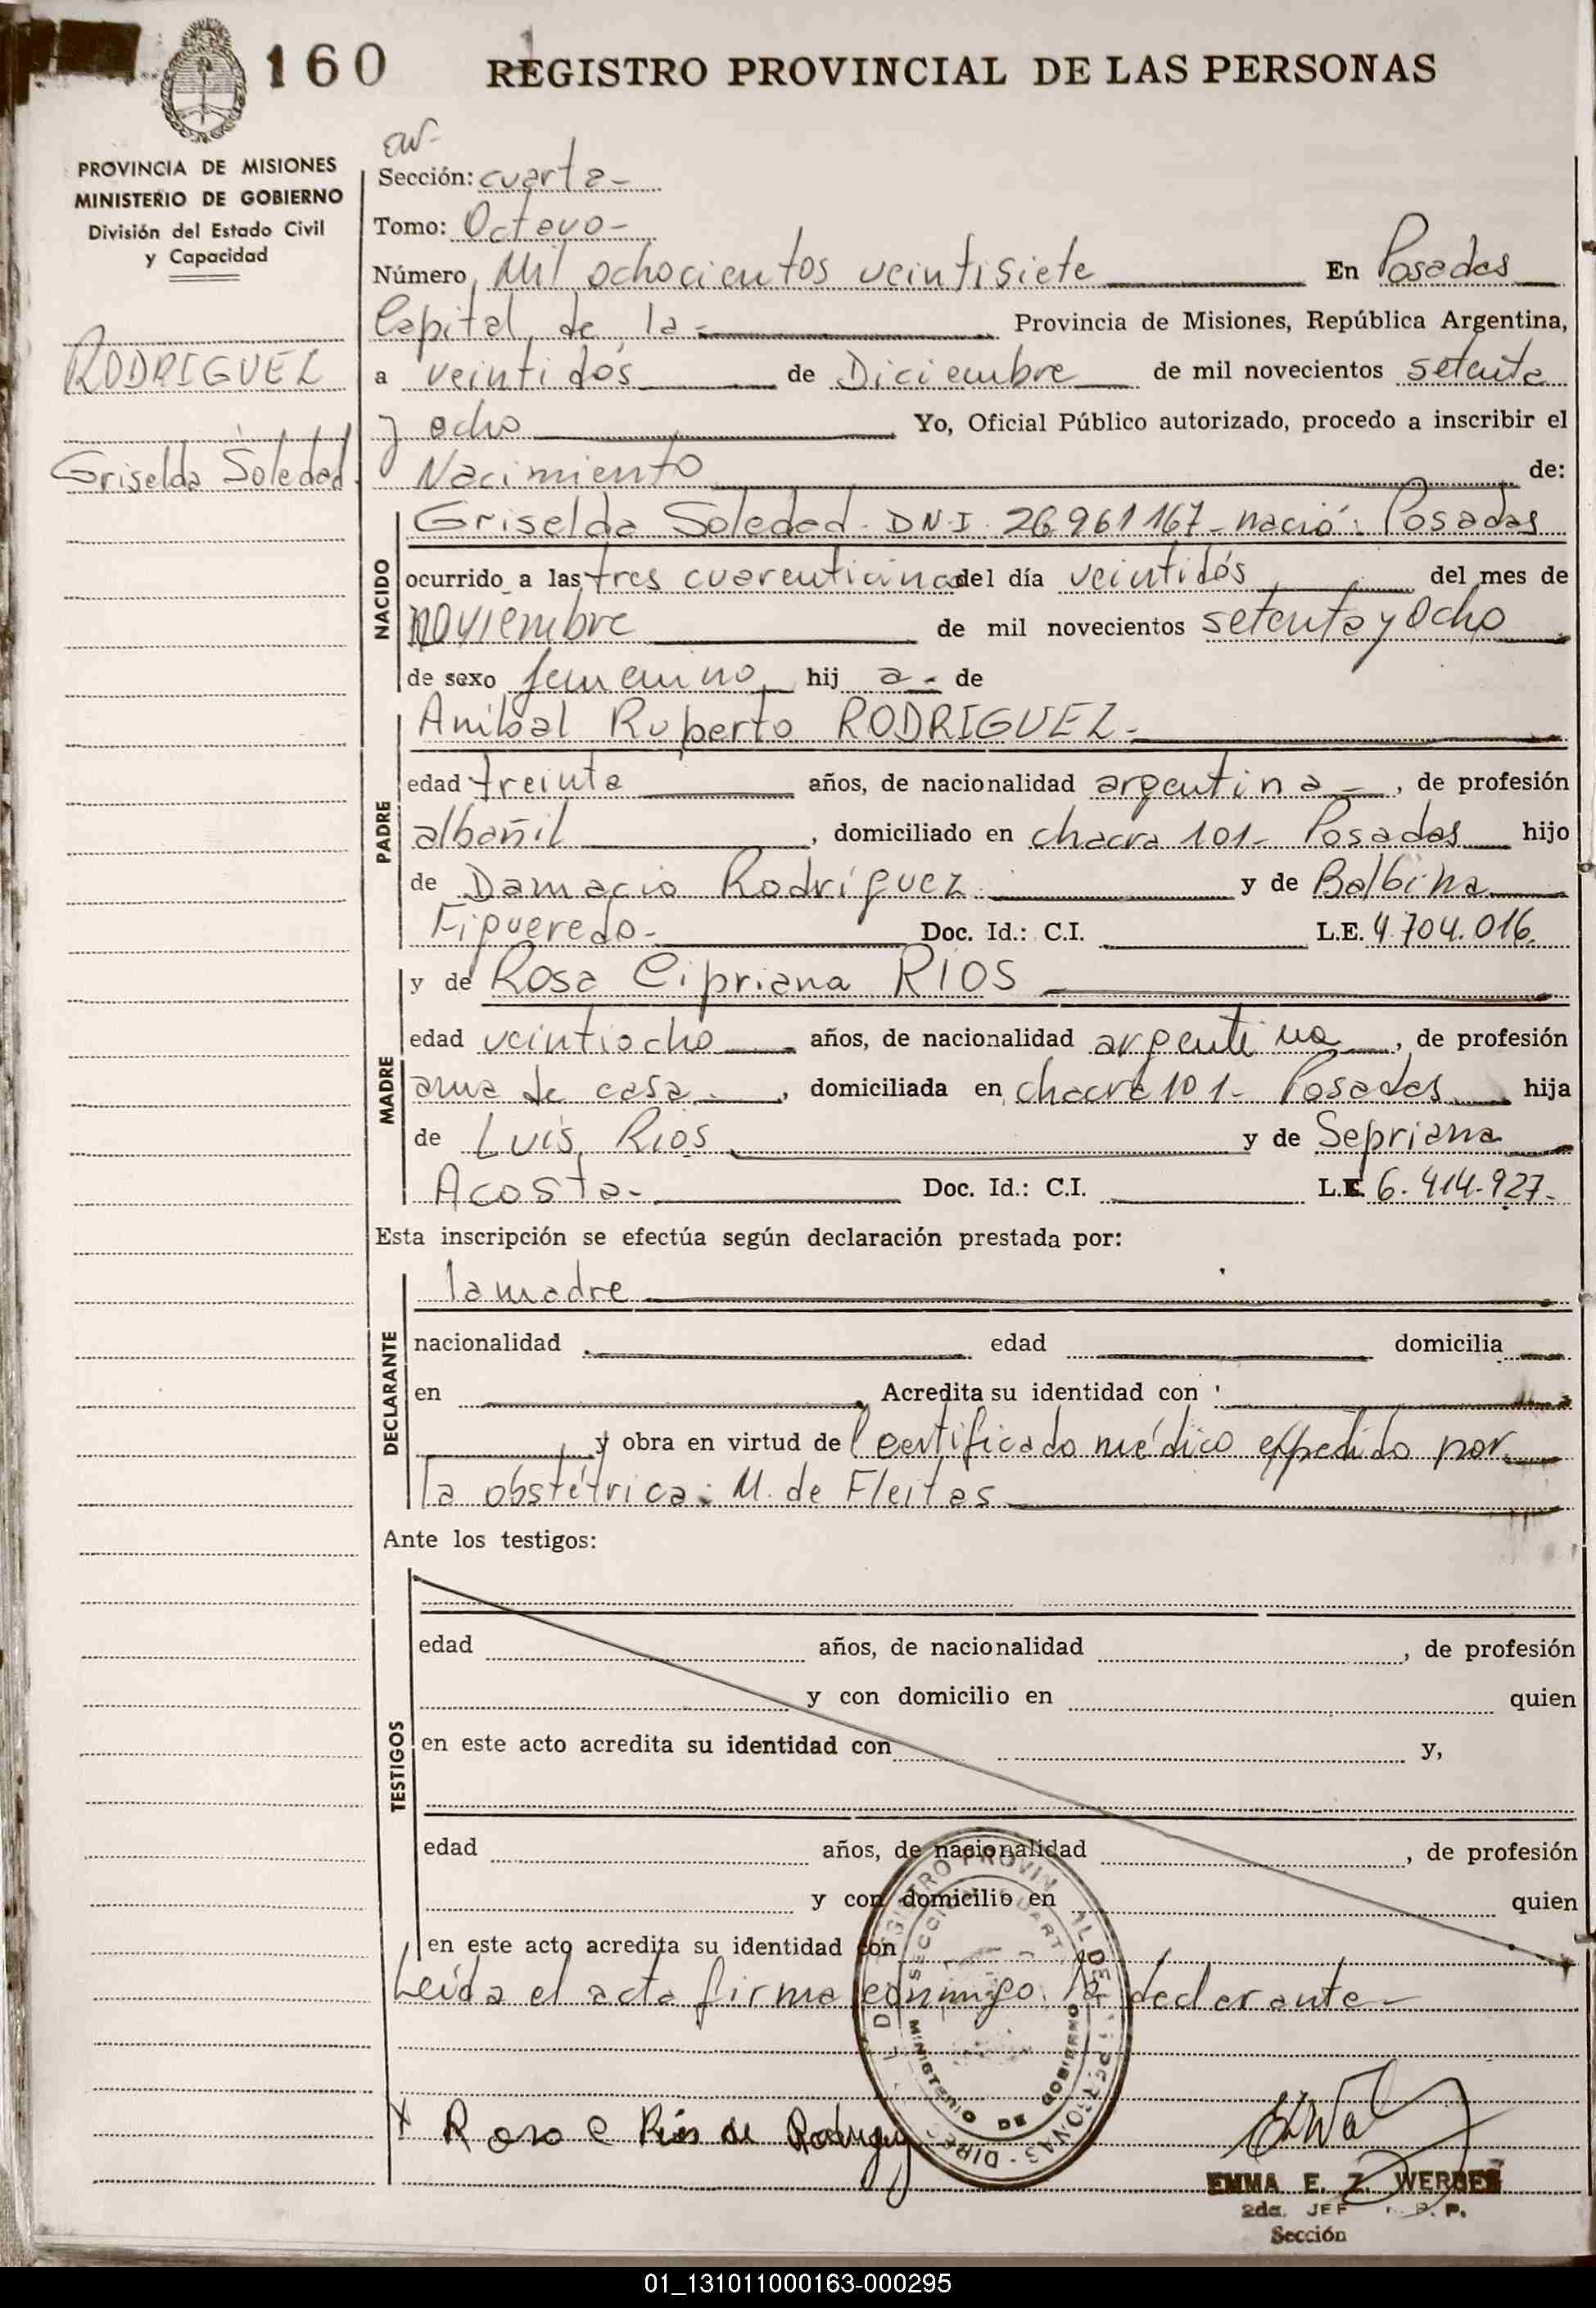 160 REGISTRO PROVINCIAL DE LAS PERSONAS
PROVINCIA DE MISIONES
MINISTERIO DE GOBIERNO
División del Estado Civil
y Capacidad
RODRIGUEZ
Griselda Soledad
Sección: cuarta-
Tomo: Octavo-
Número Mil ochocientos veintisiete En Posadas
Capital de la- Provincia de Misiones, República Argentina,
a veintidós de Diciembre de mil novecientos setenta
y ocho Yo, Oficial Público autorizado, procedo a inscribir el
Nacimiento de:
NACIDO
Griselda Soledad- DNI. 26961167- nació: Posadas
ocurrido a las tres cuarenticinco del día veintidós del mes de
noviembre de mil novecientos setenta y ocho
de sexo femenino hij a- de
PADRE
Anibal Ruperto RODRIGUEZ-
edad treinta años, de nacionalidad argentina-, de profesión
albañil, domiciliado en chacra 101- Posadas hijo
de Damacio Rodríguez y de Balbina
Figueredo- Doc. Id.: C.I. L.E. 4.704.016.
MADRE
y de Rosa Cipriana RIOS
edad veintiocho años, de nacionalidad argentina, de profesión
ama de casa-, domiciliada en chacra 101- Posadas hija
de Luis Rios y de Sepriana
Acosta- Doc. Id.: C.I. L.E. 6.414.927-
Esta inscripción se efectúa según declaración prestada por:
DECLARANTE
la madre
nacionalidad edad domicilia
en Acredita su identidad con
y obra en virtud de l certificado médico expedido por
la obstétrica: M. de Fleitas
Ante los testigos:
TESTIGOS
edad años, de nacionalidad , de profesión
y con domicilio en quien
en este acto acredita su identidad con y,
edad años, de nacionalidad , de profesión
y con domicilio en quien
en este acto acredita su identidad con
Leída el acta firma conmigo la declarante-
MINISTERIO DE GOBIERNO
x Rosa C Ríos de Rodriguez
EMMA E. Z. WERBES
2da. JEF R. P. P.
Sección
01_131011000163-000295